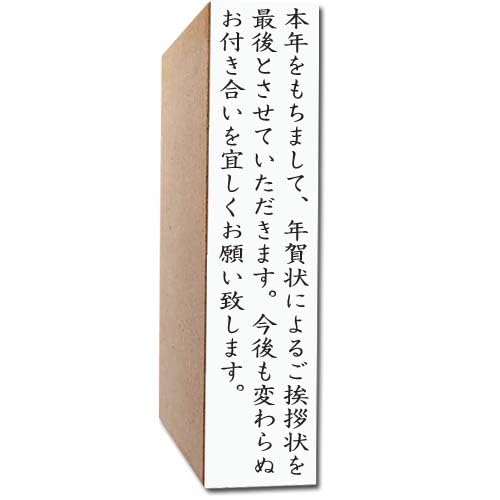 本年をもちまして、年賀状によるご挨拶状を
最後とさせていただきます。今後も変わらぬ
お付き合いを宜しくお願い致します。